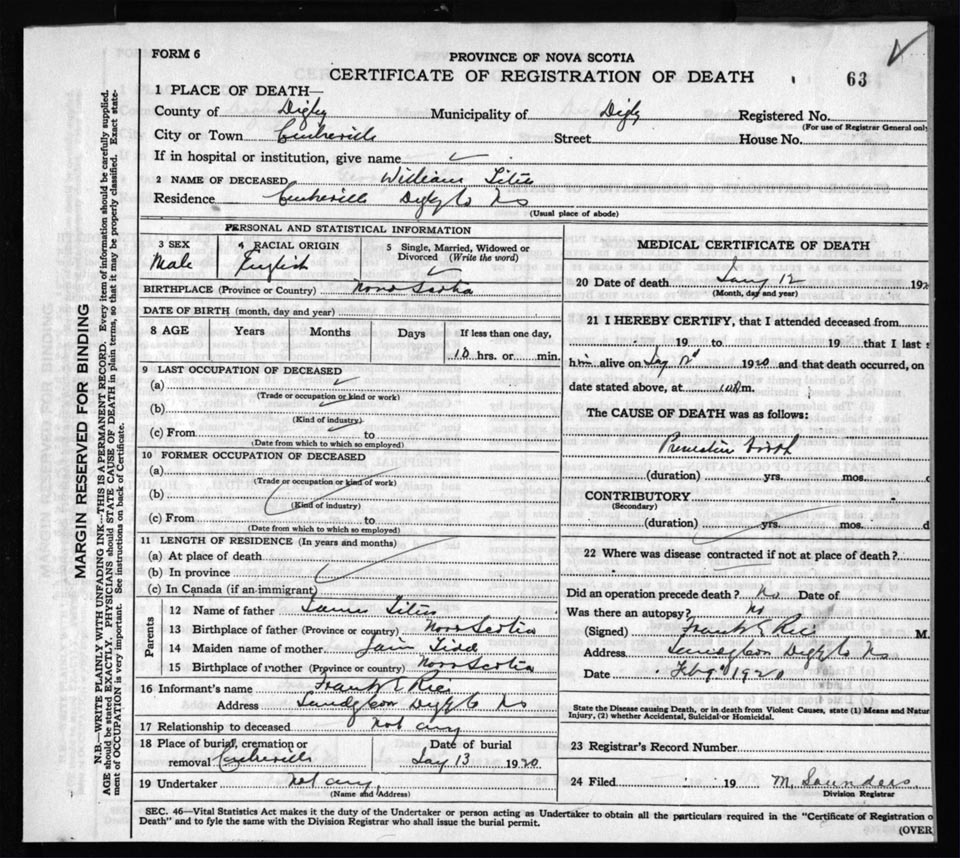 FORM 6
PROVINCE OF NOVA SCOTIA
CERTIFICATE OF REGISTRATION OF DEATH
63
1 PLACE OF DEATH—
County of Digby Municipality of Digby Registered No.
(For use of Registrar General only
City or Town Centreville Street House No.
If in hospital or institution, give name
2 NAME OF DECEASED William Titus
Residence Centreville Digby Co NS
(Usual place of abode)
PERSONAL AND STATISTICAL INFORMATION
3 SEX Male
4 RACIAL ORIGIN English
5 Single, Married, Widowed or Divorced (Write the word)
BIRTHPLACE (Province or Country) Nova Scotia
DATE OF BIRTH (month, day and year)
8 AGE Years Months Days If less than one day,
10 hrs. or min.
9 LAST OCCUPATION OF DECEASED
(a)
(Trade or occupation or kind or work)
(b)
(Kind of industry)
(c) From to
(Date from which to which so employed)
10 FORMER OCCUPATION OF DECEASED
(a)
(Trade or occupation or kind of work)
(b)
(Kind of industry)
(c) From to
(Date from which to which so employed)
11 LENGTH OF RESIDENCE (In years and months)
(a) At place of death
(b) In province
(c) In Canada (if an immigrant)
Parents
12 Name of father James Titus
13 Birthplace of father (Province or country) Nova Scotia
14 Maiden name of mother
15 Birthplace of mother (Province or country) Nova Scotia
16 Informant's name Frank E Rice
Address Sandy Cove Digby Co NS
17 Relationship to deceased not any
18 Place of burial, cremation or removal Centreville
Date of burial Jany 13 1920
19 Undertaker not any
(Name and Address)
MEDICAL CERTIFICATE OF DEATH
20 Date of death Jany 12 192
(Month, day and year)
21 I HEREBY CERTIFY, that I attended deceased from
19 to 19 that I last s
him alive on Jany 12 1920 and that death occurred, on
date stated above, at m.
The CAUSE OF DEATH was as follows:
Premature birth
(duration) yrs. mos. d
CONTRIBUTORY
(Secondary)
(duration) yrs. mos. d
22 Where was disease contracted if not at place of death?
Did an operation precede death? No Date of
Was there an autopsy? No
(Signed) Frank E Rice M.
Address Sandy Cove Digby Co NS
Date Feby 1920
State the Disease causing Death, or in death from Violent Causes, state (1) Means and Natur
Injury, (2) whether Accidental, Suicidal or Homicidal.
23 Registrar's Record Number
24 Filed 19 M. Saunders
Division Registrar
SEC. 46—Vital Statistics Act makes it the duty of the Undertaker or person acting as Undertaker to obtain all the particulars required in the "Certificate of Registration o
Death" and to fyle the same with the Division Registrar who shall issue the burial permit.
(OVER
MARGIN RESERVED FOR BINDING
N.B.—WRITE PLAINLY WITH UNFADING INK—THIS IS A PERMANENT RECORD. Every item of information should be carefully supplied.
AGE should be stated EXACTLY. PHYSICIANS should STATE CAUSE OF DEATH in plain terms, so that it may be properly classified. Exact state-
ment of OCCUPATION is very important. See instructions on back of Certificate.